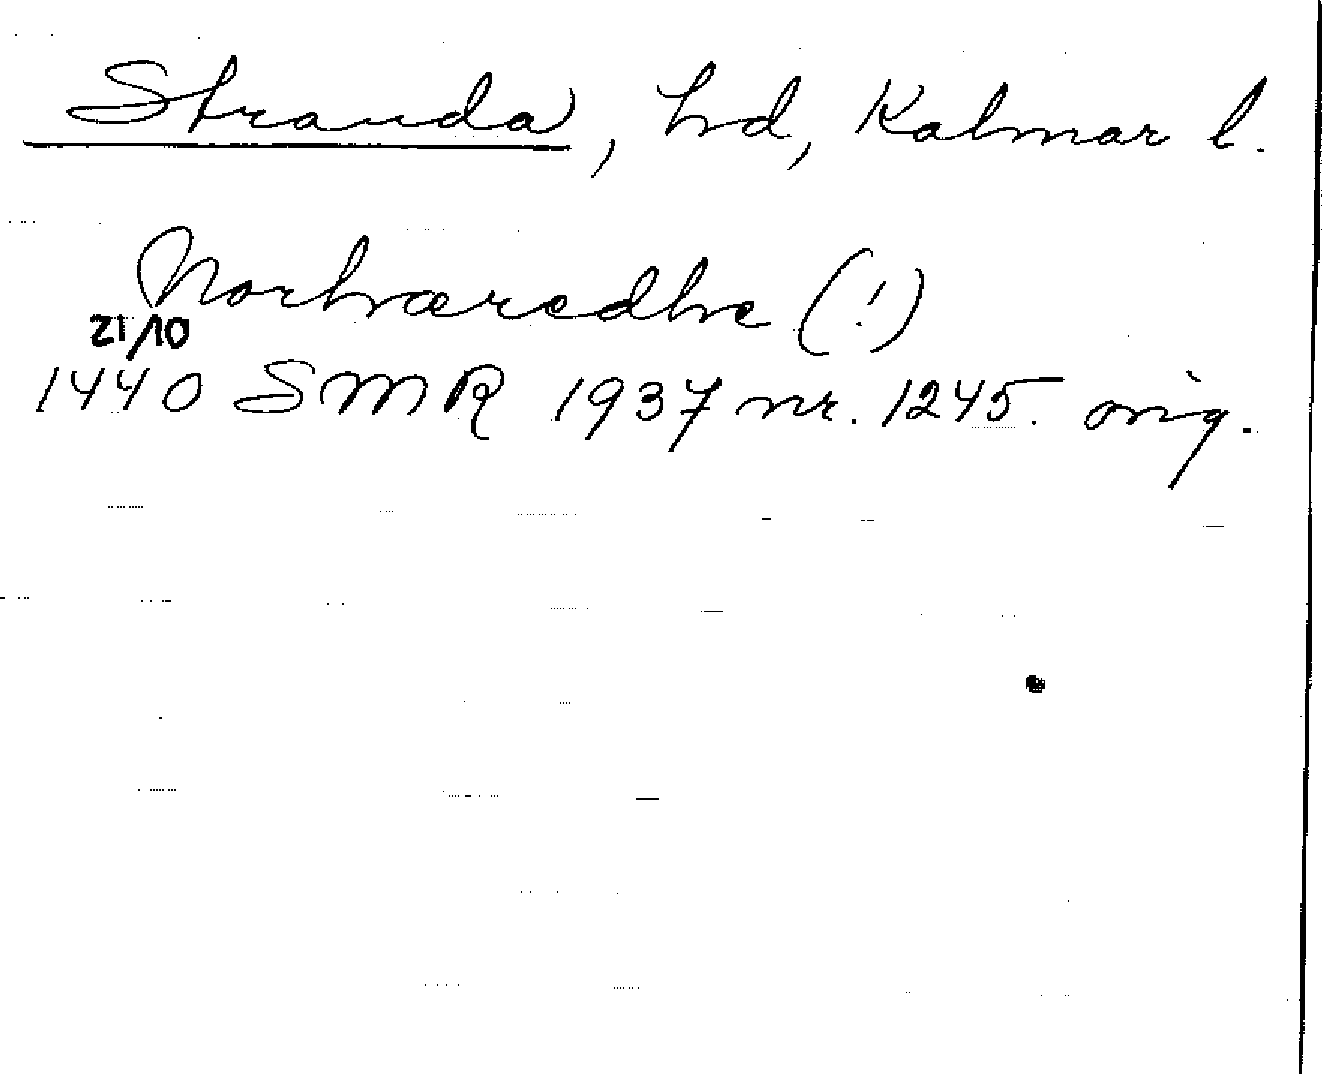 Stranda, hd, Kalmar l.
Norhæredhe (!)
21/10
1440 SMR 1937 nr. 1245. orig.